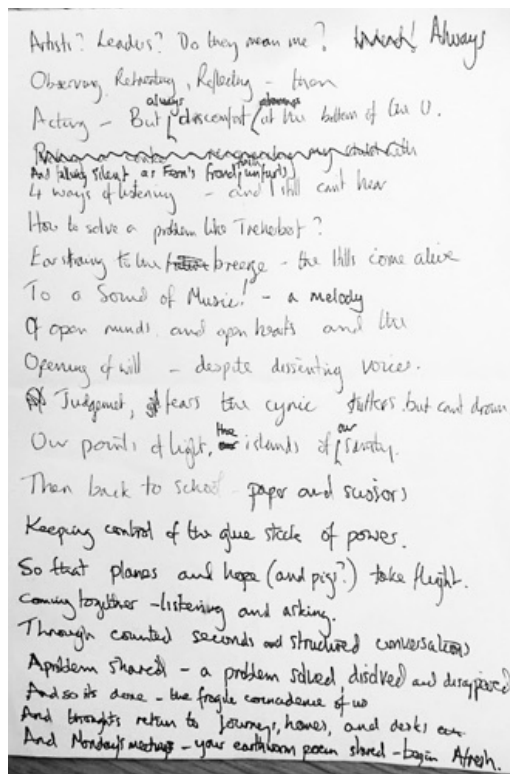 Artists? Leaders? Do they mean me? Always
Observing, Retreating, Reflecting - then
always
Acting - But discomfort at the bottom of the U.
And falling silent as Fern's frond unfurls
4 ways of listening - and I still can't hear
How to solve a problem like Treherbert?
Ear straining to the breeze - the Hills come alive
To a Sound of Music! - a melody
Of open minds, and open hearts and the
Opening of will - despite dissenting voices.
Judgement, fears the cynic but can't drown
the our
Our points of light, islands of sanity.
Then back to school paper and scissors
Keeping control of the glue stick of power.
So that planes and hope (and pigs?) take flight.
Coming together - listening and asking.
Through counted seconds and structured conversations
A problem shared - a problem solved disolved and disappeared
And so its done - the fragile coincidence of us
And thoughts return to Journeys, homes, and desks
And Monday's meetings - your earthworm poem shared - begin Afresh.